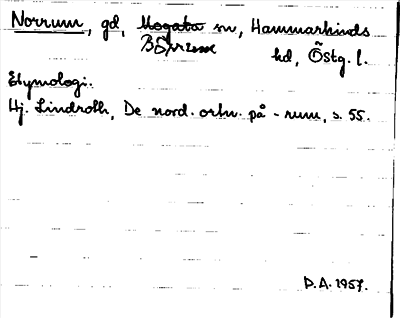 Norrum, gd, Mogata sn, Hammarkinds
hd, Östg. l.
Etymologi.
Hj. Lindroth, De nord. ortn. på -rum, s. 55.
D.A. 1957.